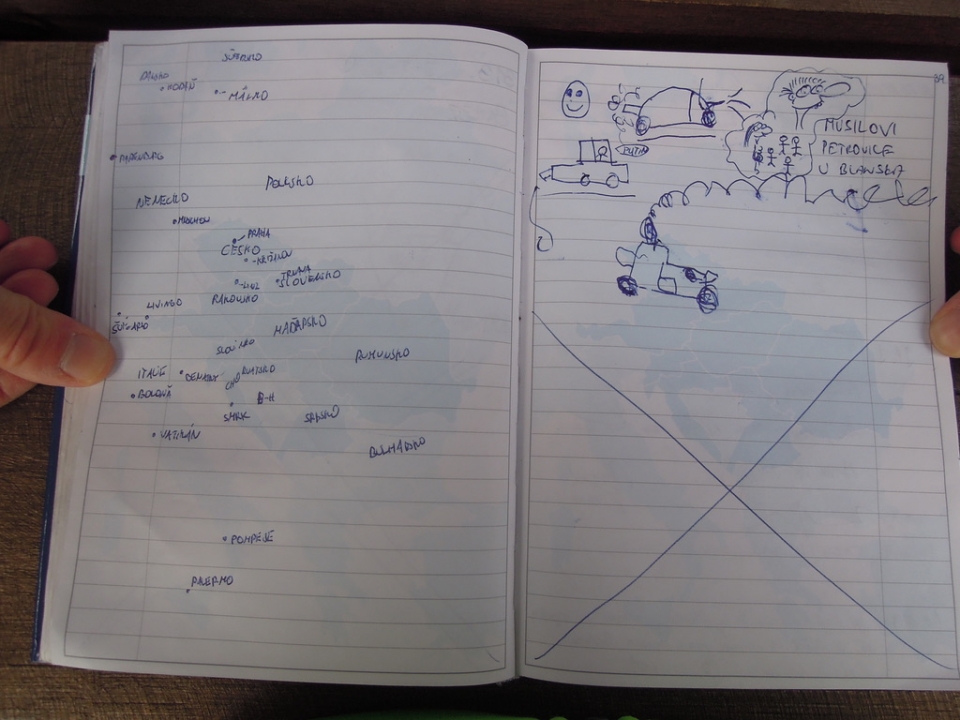 DÁNSKO
KODAŇ
MALMO
POLSKO
NĚMECKO
MNICHOV
PRAHA
ČESKO
LINZ
TRNAVA
SLOVENSKO
LIVIGNO
RAKOUSKO
MAĎARSKO
RUMUNSKO
ITÁLIE
BENÁTKY
BOLOŇA
B-H
SRBSKO
VATIKÁN
BULHARSKO
POMPEJE
PALERMO
39
MUSILOVI
PETROVICE
U BLANSKA